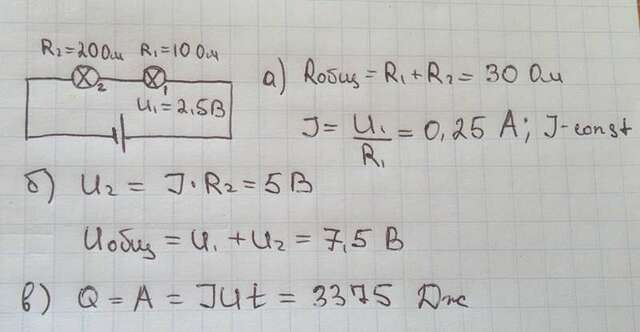 R₂=20Ом R₁=10Ом
2 1
U₁=2,5В
а) Rобщ=R₁+R₂=30 Ом
J=U₁/R₁=0,25 А; J-const
б) U₂=J·R₂=5В
Uобщ=U₁+U₂=7,5 В
в) Q=A=JUt=3375 Дж